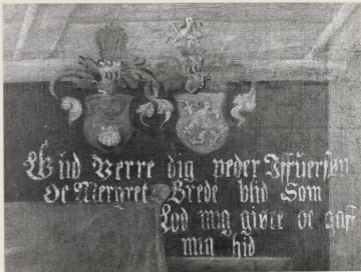 Gud Verre dig peder Iffuersøn
Oc Mergret Brede blid Som
Lod mig giøre oc gaff
mig hid